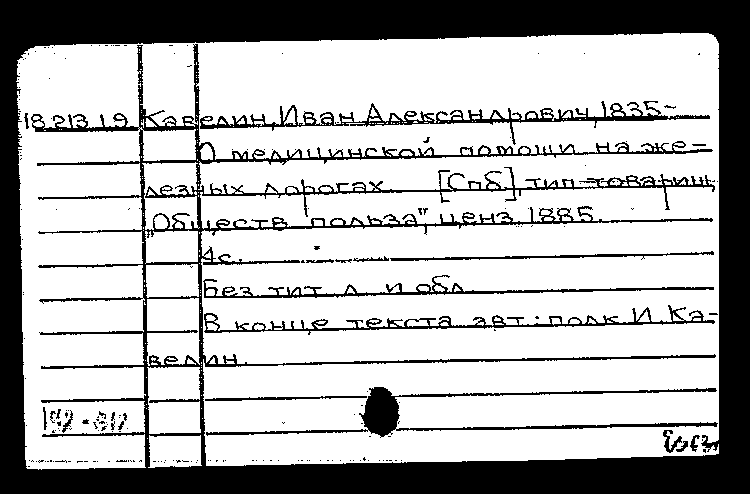 18.213.1.9 Кавелин, Иван Александрович, 1835-
О медицинской помощи на же=
лезных дорогах. [Спб], тип. товарищ.
„Обществ. польза", ценз. 1885.
4с.
Без тит. л. и обл.
В конце текста авт.: полк. И. Ка-
велин.